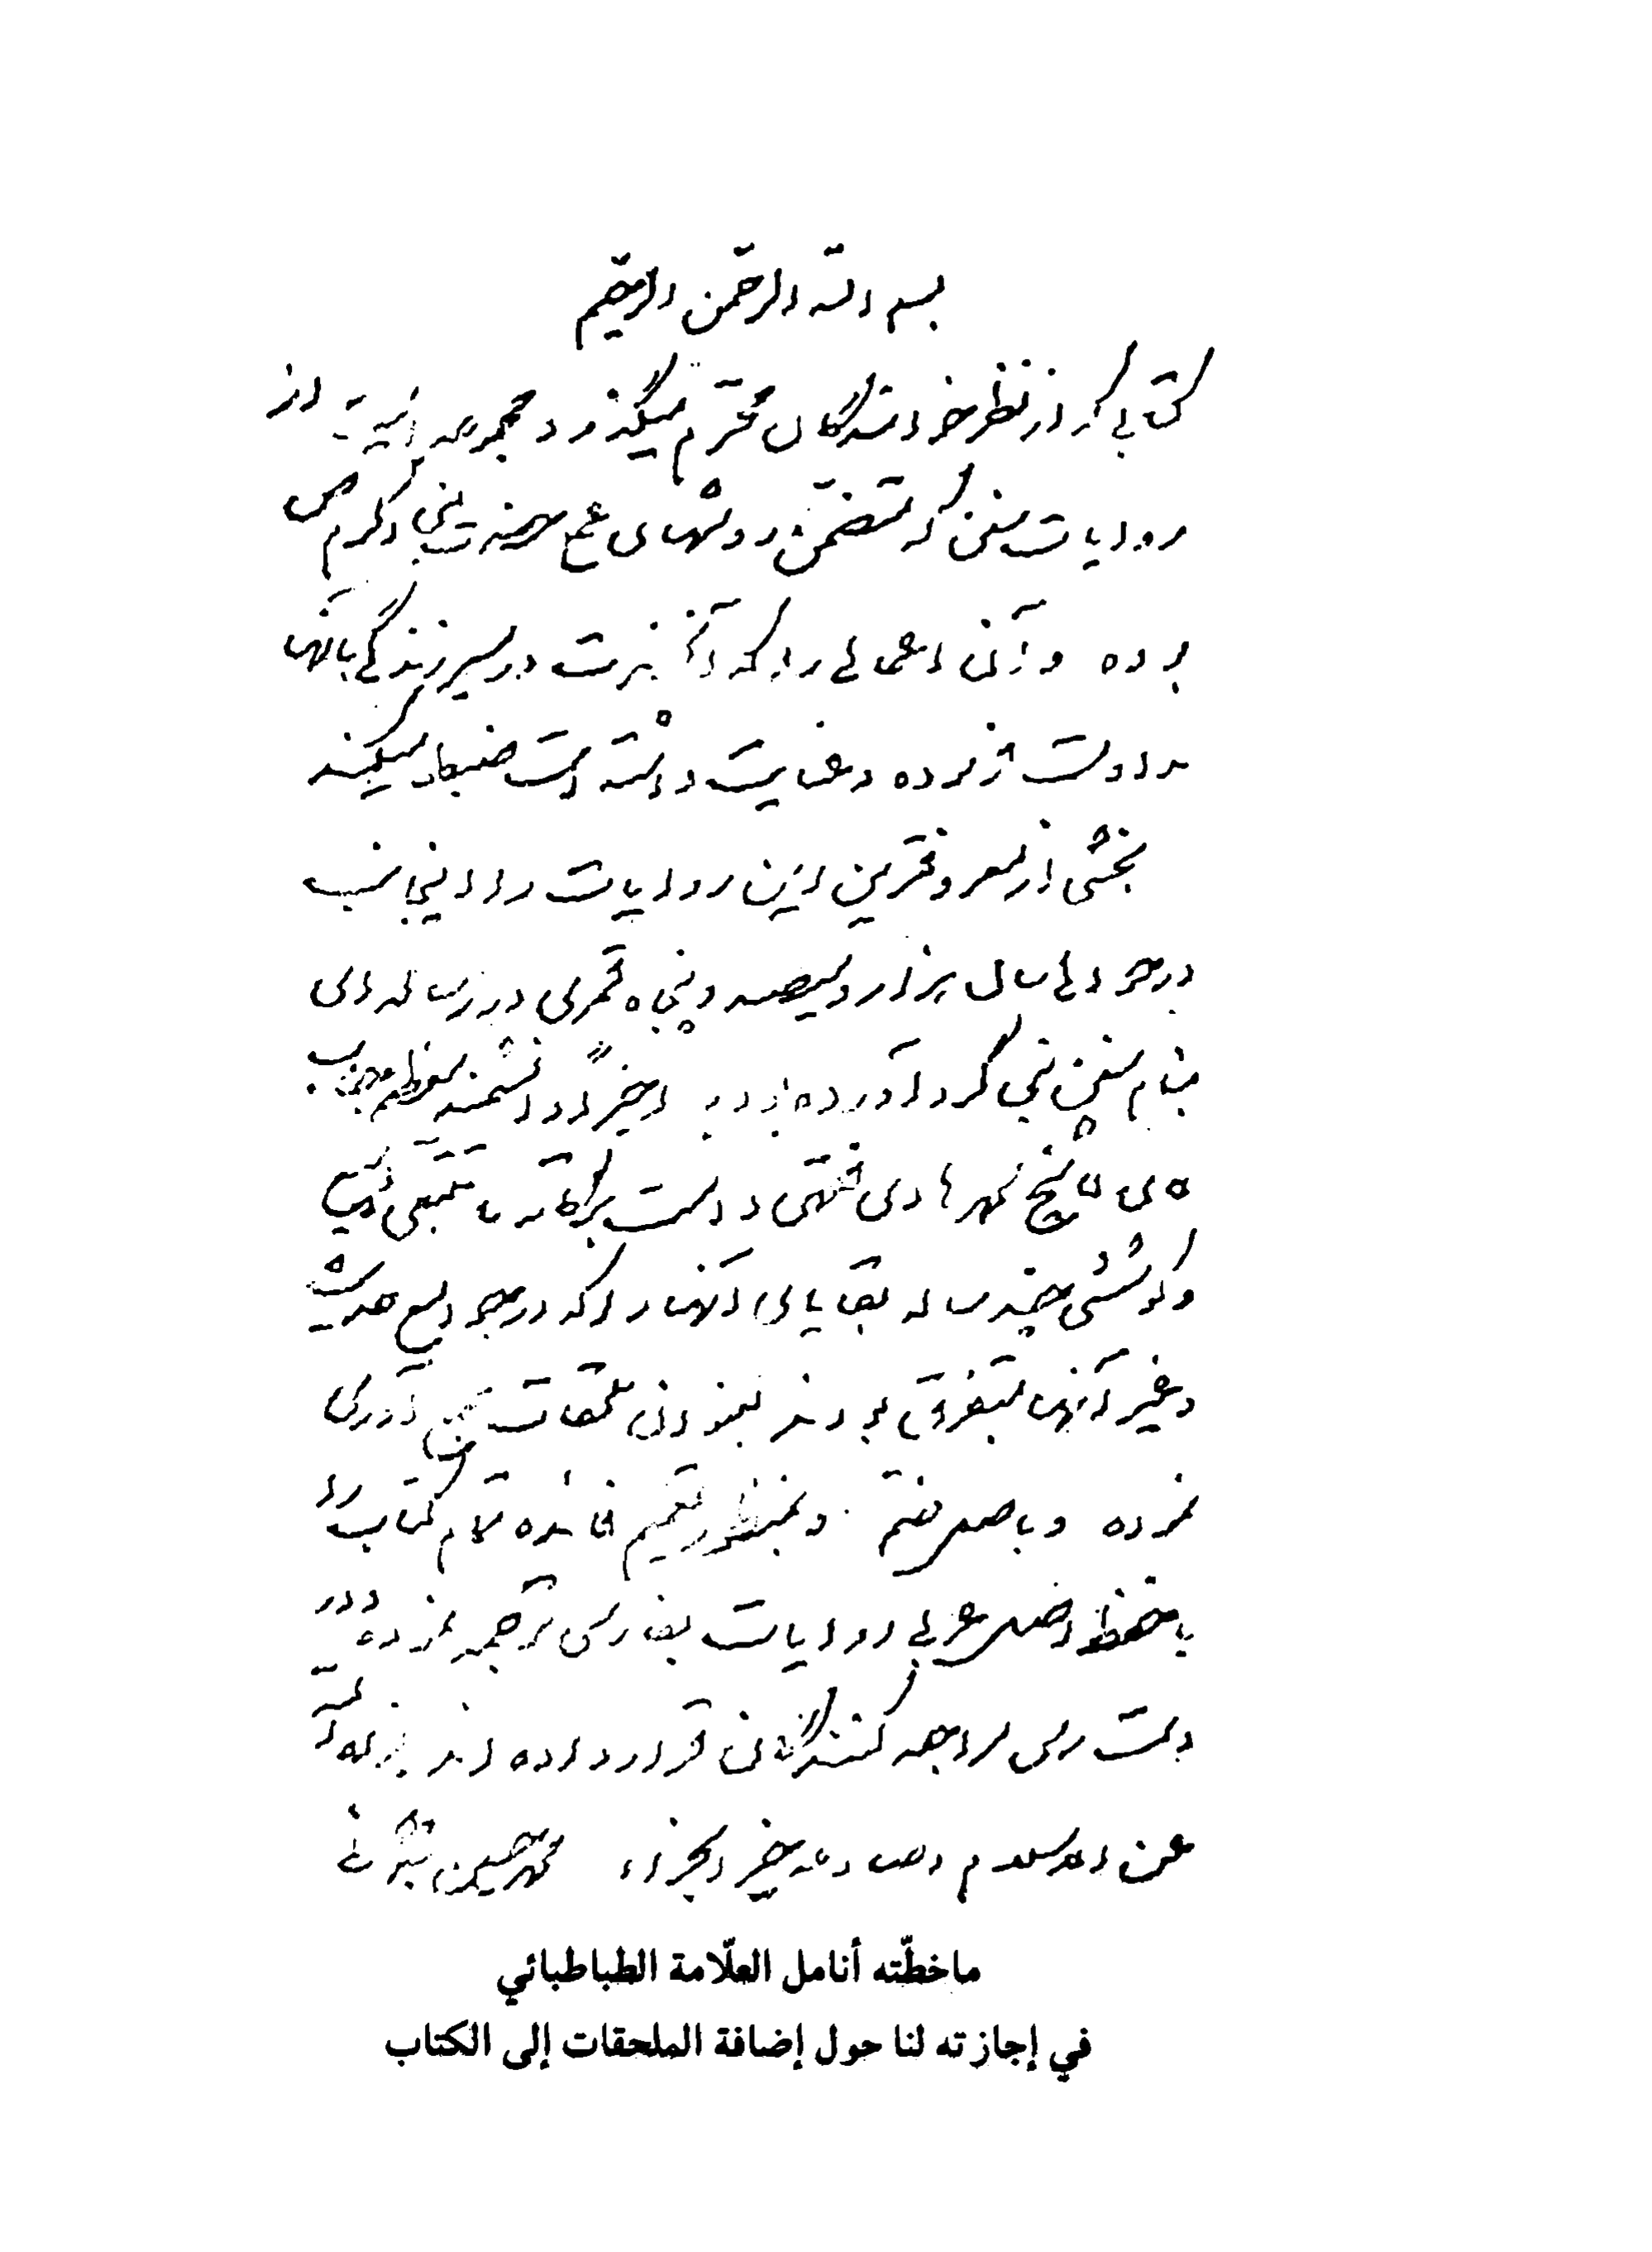 بسم الله الرحمن الرحیم
کتابی که از نظر خوانندگان محترم میگذرد مجموعه ایست از
روایات سنن که متضمن روشهای عمومی نبی اکرم ص
بوده و آن اعمالی را که آنحضرت در مسیر زندگی بآنها
مداومت فرموده و عنایت داشته است ضبط میکند
بخشی از معروفترین این روایات را اینجانب
در حوالی سال هزار و سیصد و پنجاه قمری در رساله ای
بنام سنن النبی گرد آورده بود و اخیراً دانشمند معظم جناب
حاج شیخ محمد هادی فقهی دامت برکاته با تتبعی وسیع
و کوششی چند ساله بقایای آنها را که در جوامع حدیث
و غیر آنها متفرق بودند بعنوان ملحقات جمع آوری
نموده و باصل ضم و بمنظور تعمیم فائده تمام کتاب را
با حفظ اصل عربی روایات بفارسی ترجمه نموده و در
دسترس مراجعه کنندگان قرار داده اند جزاه الله
عن الاسلام و اهله خیر الجزاء محمد حسین طباطبائی
ما خطّته أنامل العلّامة الطباطبائي
في إجازته لنا حول إضافة الملحقات إلى الكتاب